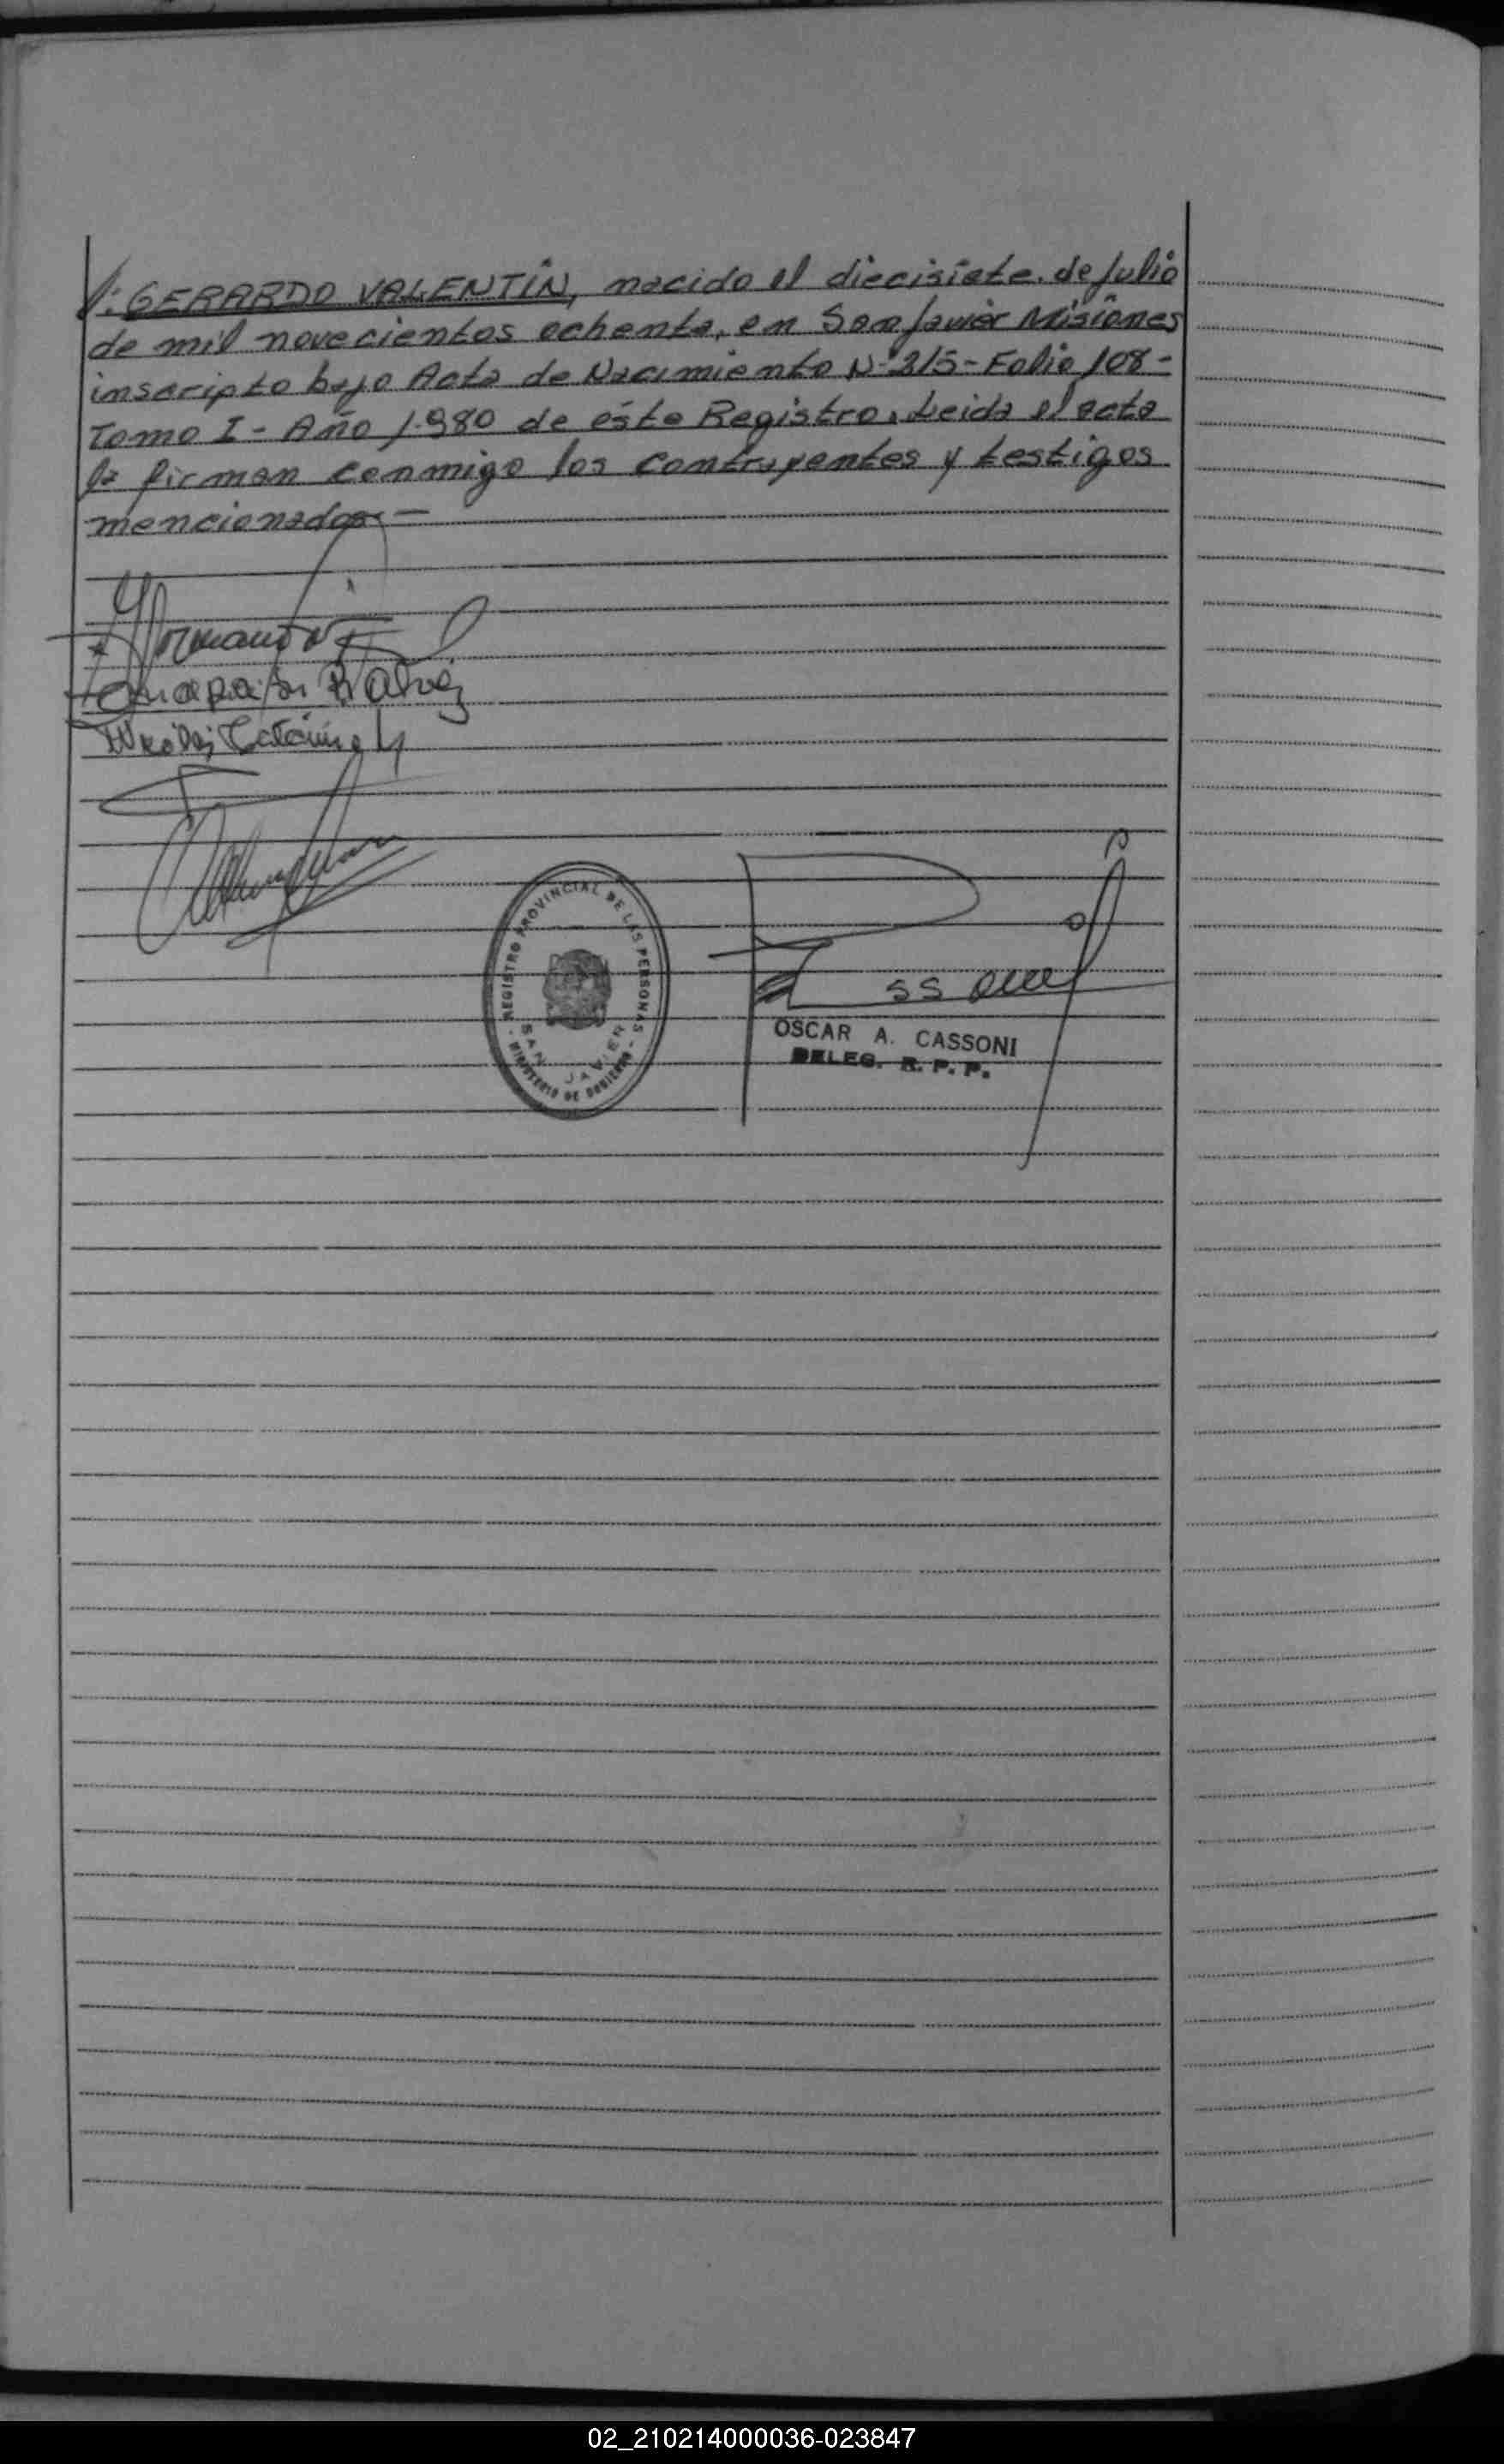 : GERARDO VALENTÍN, nacido el diecisiete de Julio
de mil novecientos ochenta, en San Javier Misiones
inscripto bajo Acta de Nacimiento Nº 215 - Folio 108 -
Tomo I - Año 1.980 de éste Registro. Leida el acta
la firman conmigo los contrayentes y testigos
mencionados. -
REGISTRO PROVINCIAL DE LAS PERSONAS
SAN JAVIER
MINISTERIO DE GOBIERNO
OSCAR A. CASSONI
DELEG. R. P. P.
02_210214000036-023847